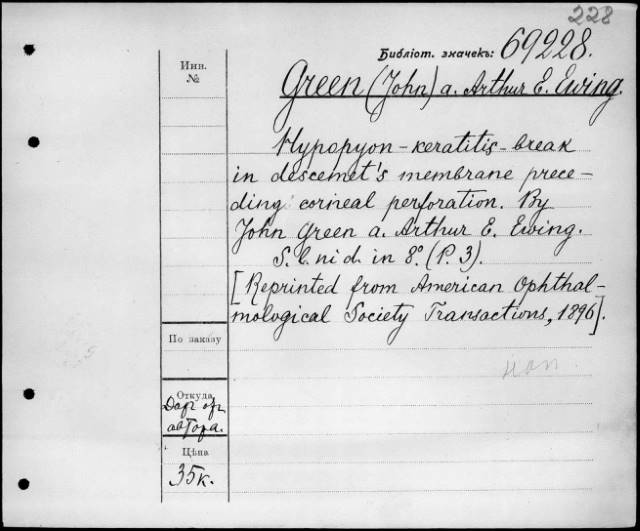 228
Библіот. значекъ: 69228.
Инв.
№
Green (John) a. Arthur E. Ewing.
Hypopyon-keratitis-break
in descemet's membrane prece-
ding corneal perforation. By
John Green a. Arthur E. Ewing.
S. l. ni d. in 8º. (P. 3).
[Reprinted from American Ophthal-
mological Society Transactions, 1896].
По заказу
Откуда
Дар от
автора.
Цѣна
35 к.